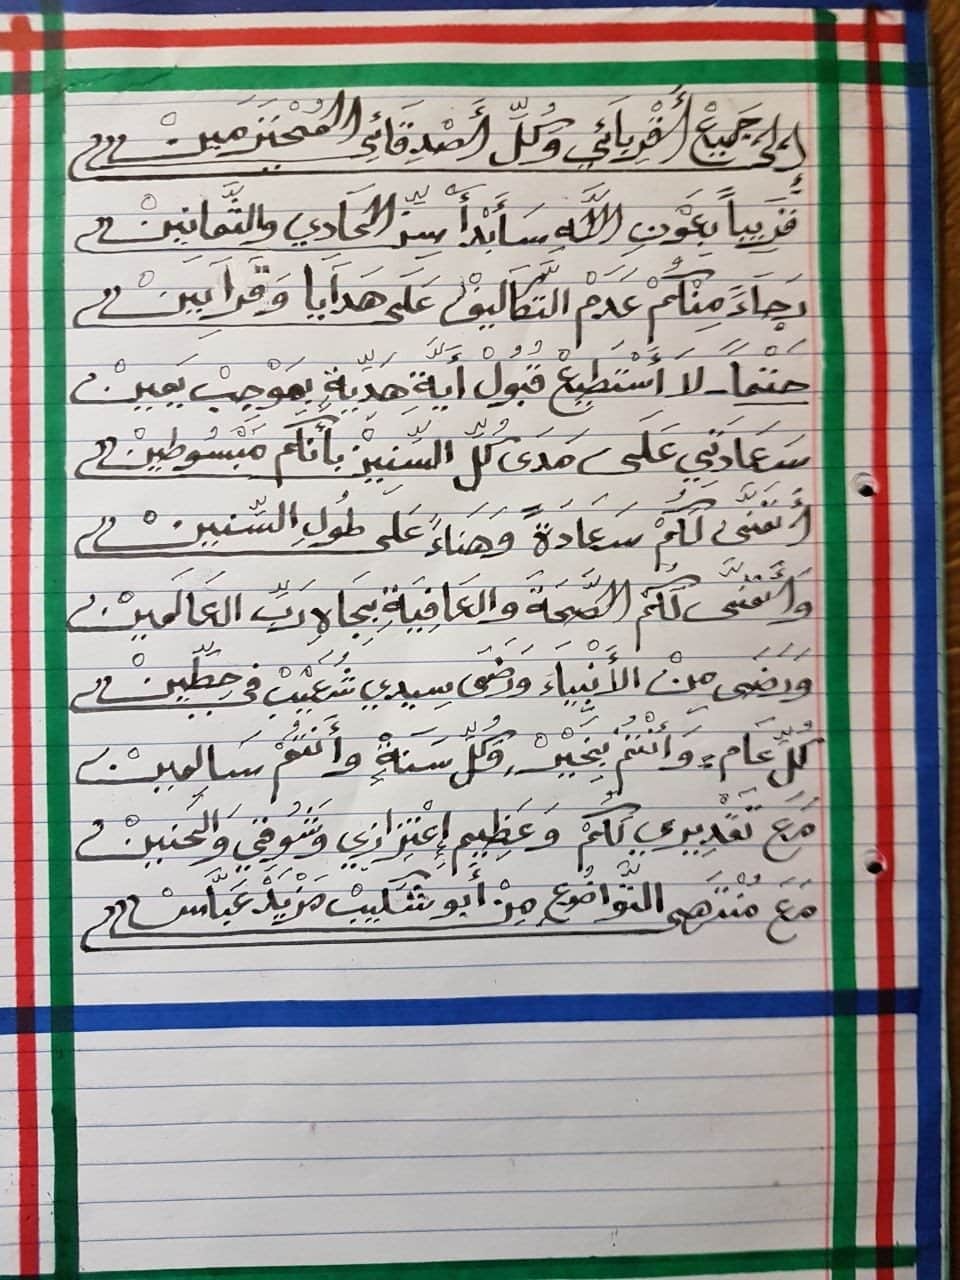 إلى جَميعْ أَقْرِبَائي وَكُلِّ أَصْدِقَائي المُحْتَرَمين
قَرِيباً بِعَوْنِ اللَّهِ سَأَبْدَأ سِنّ الحَادي والثَّمانِينْ
رَجاءً مِنْكُمْ عَدَمْ التَّكَاليفْ عَلَى هَدَايا وَقَرَابينْ
حَتْماً لا أَسْتَطيعْ قُبُولْ أَيَّة هَدِيّةٍ بِمَوْجِبْ يَمينْ
سَعَادَتي عَلَى مَدَى كُلّ السِّنينْ بأَنَّكم مَبْسُوطينْ
أَتَمَنَّى لَكُمْ سَعَادَةً وَهَنَاءً عَلى طُولِ السِّنينْ
وَأَتَمَنَّى لَكُمْ الصَّحَّةَ والعَافِيَةِ بِجَاهِ رَبِّ العَالَمينْ
وَرَضَى مِنْ الأَنْبِيَاءَ وَرَضَى سِيدي شُعَيْبْ في حِطِّينْ
كُلّ عَام وَأَنْتُمْ بِخَيْرْ وَكُلِّ سَنَةٍ وأَنْتُمْ سَالِمينْ
مَعَ تَقْدِيري لَكُمْ وَعَظِيم إعْتِزازي وَشَوْقي وَالحَنينْ
مَعَ مُنْتَهَى التَّوَاضُعِ مِنْ أَبو شَكيبْ مَزْيَدْ عَبَّاسْ